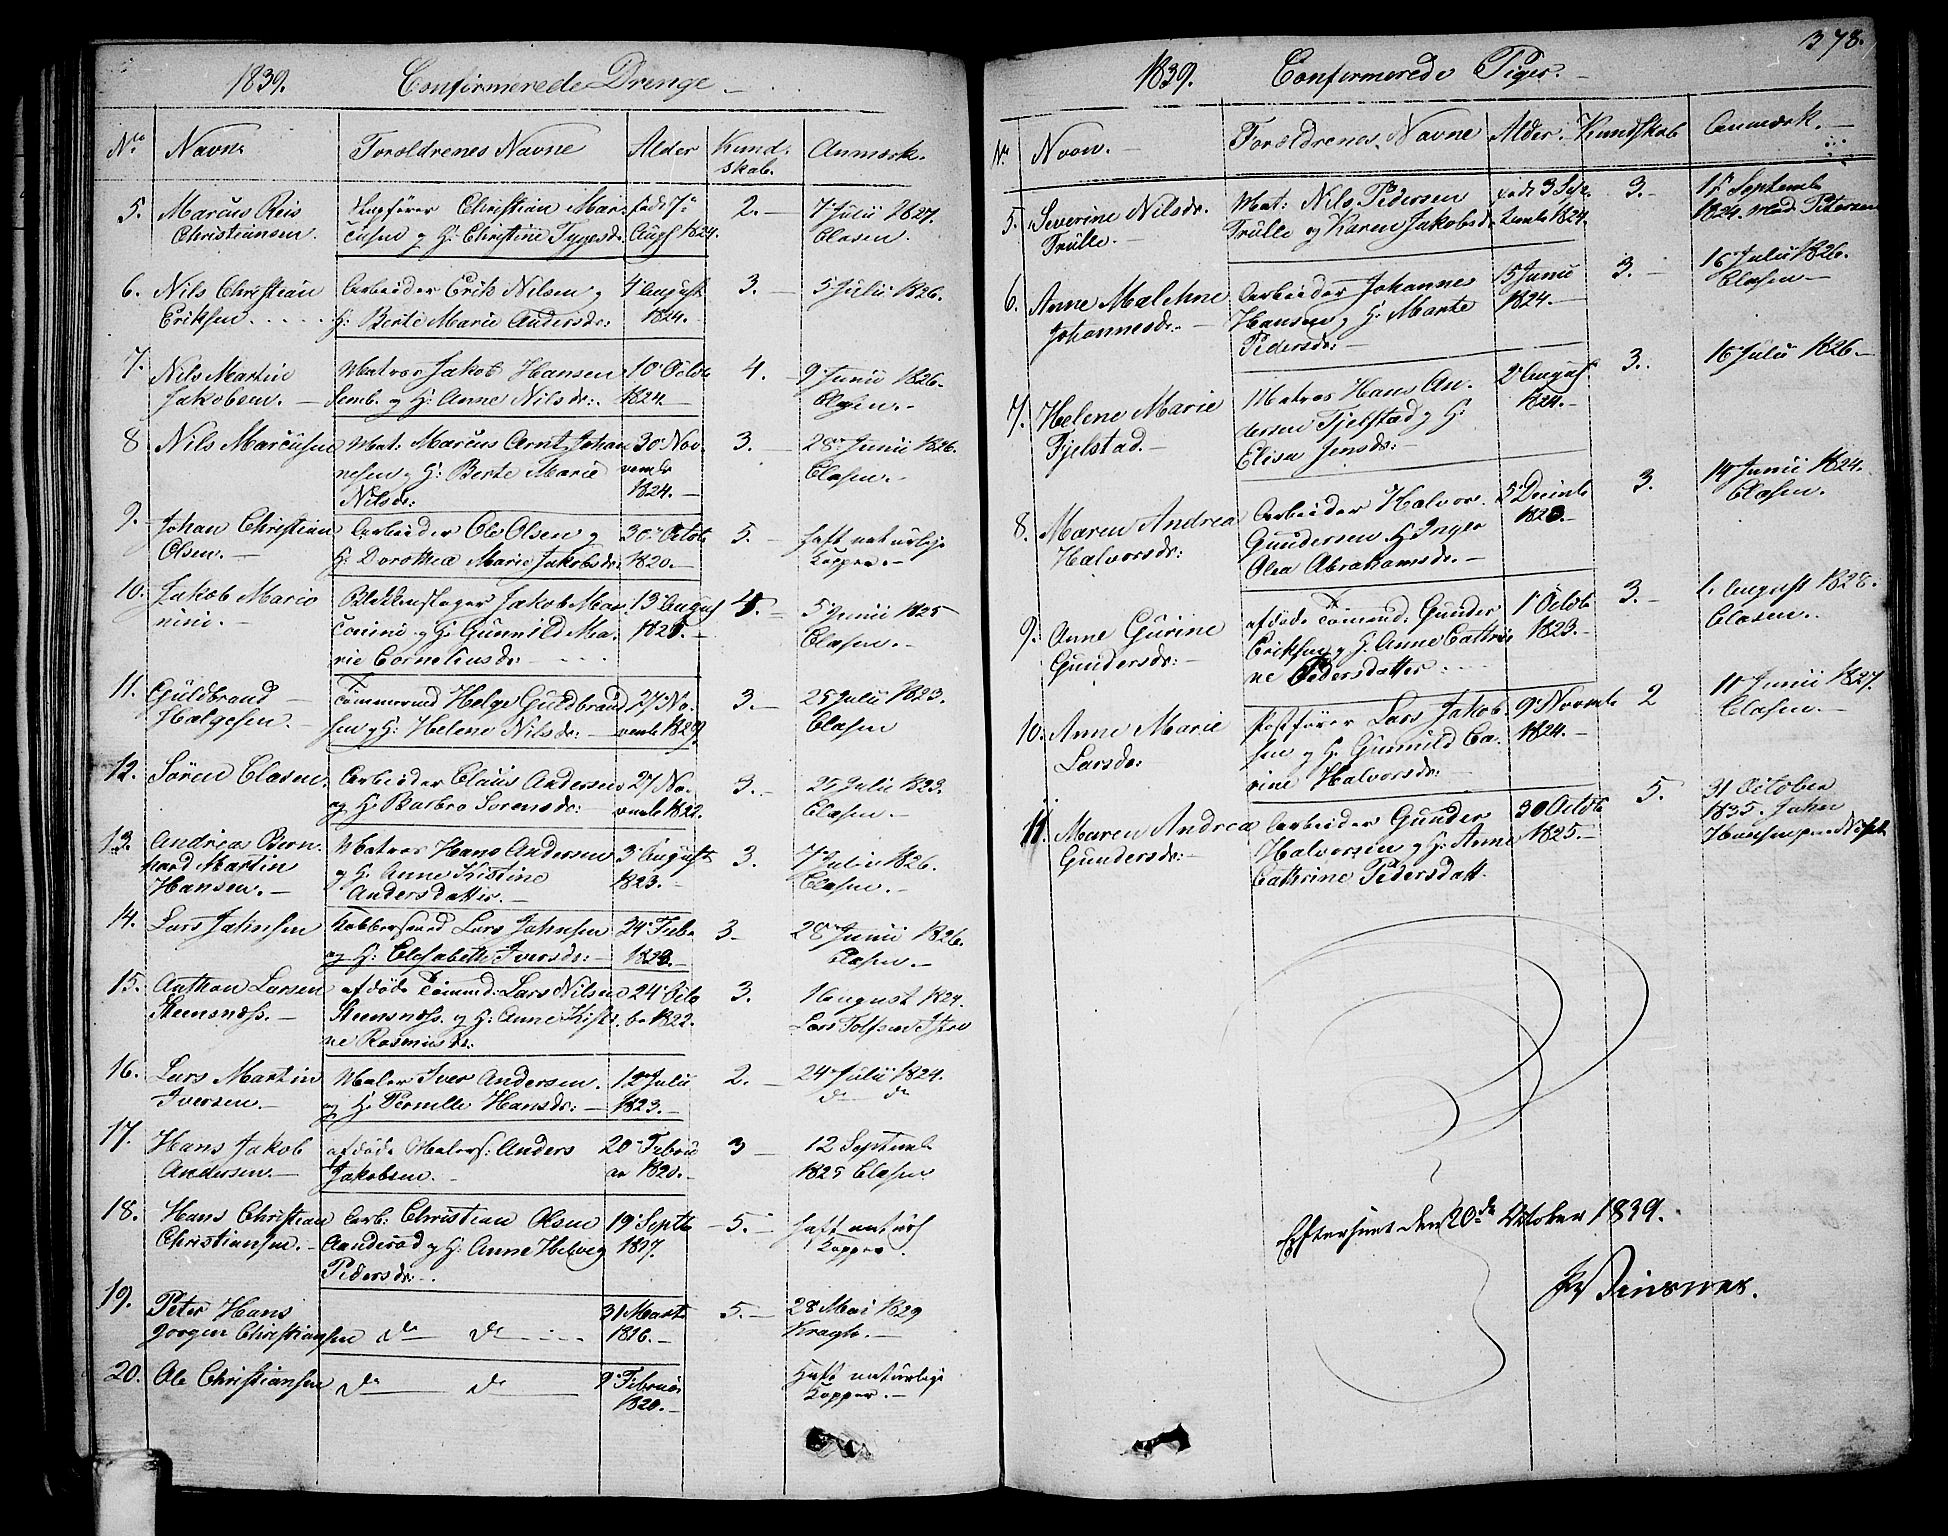 1839. Confirmerede Drenge
No Navne Forældrenes Navne Alder Kund-
skab. Anmærk.
5. Marcus Reis
Christiansen.
Christian Mar-
cusen og H: Christine Tygesdr.
født 7de
Aug 1824.
2.
7 Julii 1827.
Clasen.
6. Nils Christian
Eriksen.
Arbeider Erik Nilsen og
H: Berte Marie Andersdr:
4de August
1824.
3.
5 Julii 1826.
Clasen.
7. Nils Martin
Jakobsen.
Matros Jakob Hansen
Semb. og H: Anne Nilsdr:
10de Octbr
1824.
4.
9 Junii 1826.
Clasen.
8 Nils Marcusen
Mat: Marcus Arnt Johan
nesen og H: Berte Marie
Nilsdr:
30de Nov-
vembr
1824.
3.
28de Junii 1826.
Clasen.
9. Johan Christian
Olsen.
Arbeider Ole Olsen og
H: Dorothea Marie Jakobsdr:
30de Octob
1820.
5.
haft naturlige
Kopper.
10. Jakob Mario
nini.
Blikkenslager Jakob Mar-
ionini og H: Gunnild Ma-
rie Corneliusdr
13de August
4.
5 Junii 1825
Clasen.
11. Guldbrand
Halgesen.
Tømmermd Helge Guldbrand
sen og H: Helene Nilsdr:
27de No-
3.
25 Julii 1823.
Clasen
12. Sören Clasen.
Arbeider Claus Andersen
og H: Barbro Sorensdr:
27 No-
vembr 1822.
3.
25 Julii 1823.
Clasen.
13. Andreas Bern
hard Martin
Hansen.
Matros Hans Andersen
og H: Anne Kistine
Andersdatter.
3de August
1823.
3.
7 Julii 1826.
Clasen.
14. Lars Jahnsen
Lars Jahnsen
og H: Elisabeth Iversdr:
24de Feb
1823.
3
28de Junii 1826.
Clasen.
15. Anthon Larsen
Steensnæss.
afdøde Tømmd: Lars Nilsen
Steensnæss. og H: Anne Kisti-
ne Rasmusdr:
24de Octo
br 1822.
3.
16 August 1824.
Lars Tolfsen
16. Lars Martin
Iversen.
Maler Iver Andersen.
og H: Pernille Hansdr:
12de Julii
1823.
2.
24 Julii 1824.
do do
17. Hans Jakob
Andersen
afdøde Anders
Jakobsen.
20de Febru
ar 1820.
3
12 Septembr
1825 Clasen
18. Hans Christian
Christiansen.
Arb: Christian Olsen
og H: Anne Helvig
Pedersdr:
19de Septbr
1817.
5.
haft naturl
Kopper.
19. Peter Hans
Jørgen Christiansen
do do
31 Marts
1816.
5.
28 Mai 1829
Kragh.
20. Ole Christiansen
do do
9de Februar
1820.
Haft naturlige
Kopper.
378.
1839. Confirmerede Piger.
No Navn. Forældrenes Navne Alder. Kundskab Anmærk.
5. Severine Nilsdr.
Trulle.
Mat: Nils Pedersen
Trulle og Karen Jakobsdr
født 3 Sep
tembr 1824.
3.
15 Septembr
1824. Mad. Petersen
6. Anne Malehne
Johannesdr.
Arbeider Johannes
Hansen og H: Marte
Pedersdr:
15 Junii
1824.
3.
16 Julii 1826.
Clasen
7. Helene Marie
Fjelstad.
Matros Hans An-
dersen Fjelstad og H:
Elisa Jensdr:
2de August
1824.
3.
16 Julii 1826.
8. Maren Andrea
Halvorsdr:
Arbeider Halvor
Gundersen og H: Inger
Olea Abrahamsdr.
5de Decmbr
3.
14 Junii 1824.
Clasen.
9. Anne Gurine
Gundersdr:
afdøde Tømmd: Gunder
Eriksen og H: Anne Cathri-
ne Pedersdatter
1de Octbr
1823.
3.
1. August 1828.
Clasen.
10. Anne Marie
Larsdr:
Postfører Lars Jakob-
sen og H: Gunnild Ca-
rine Halvorsdr:
9de Novembr
1824.
2
11 Junii 1827.
Clasen.
11. Maren Andrea
Gundersdr:
Arbeider Gunder
Halvorsen og H: Anne
Cathrine Pedersdatt.
30 Octbr
1825.
5.
31 October
1835. Jahn
Efterseet den 20de Oktober 1839.